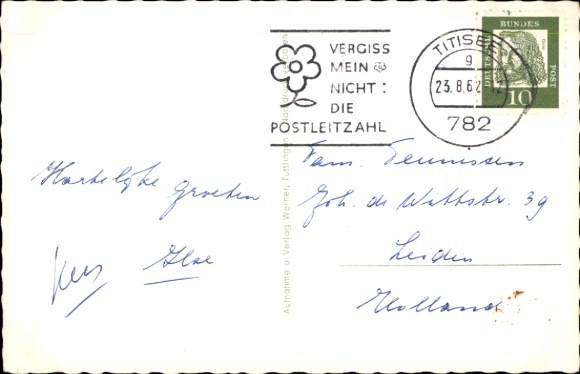 VERGISS
MEIN
NICHT:
DIE
POSTLEITZAHL
TITISEE
g
23.8.62
782
DEUTSCHE
BUNDES
POST
10
Hartelijke groeten
Kees Ilse
Aufnahme u. Verlag Werner, Tuttlingen Nachdruck verboten
Fam. Teunissen
Joh. de Wittstr. 39
Leiden
Holland